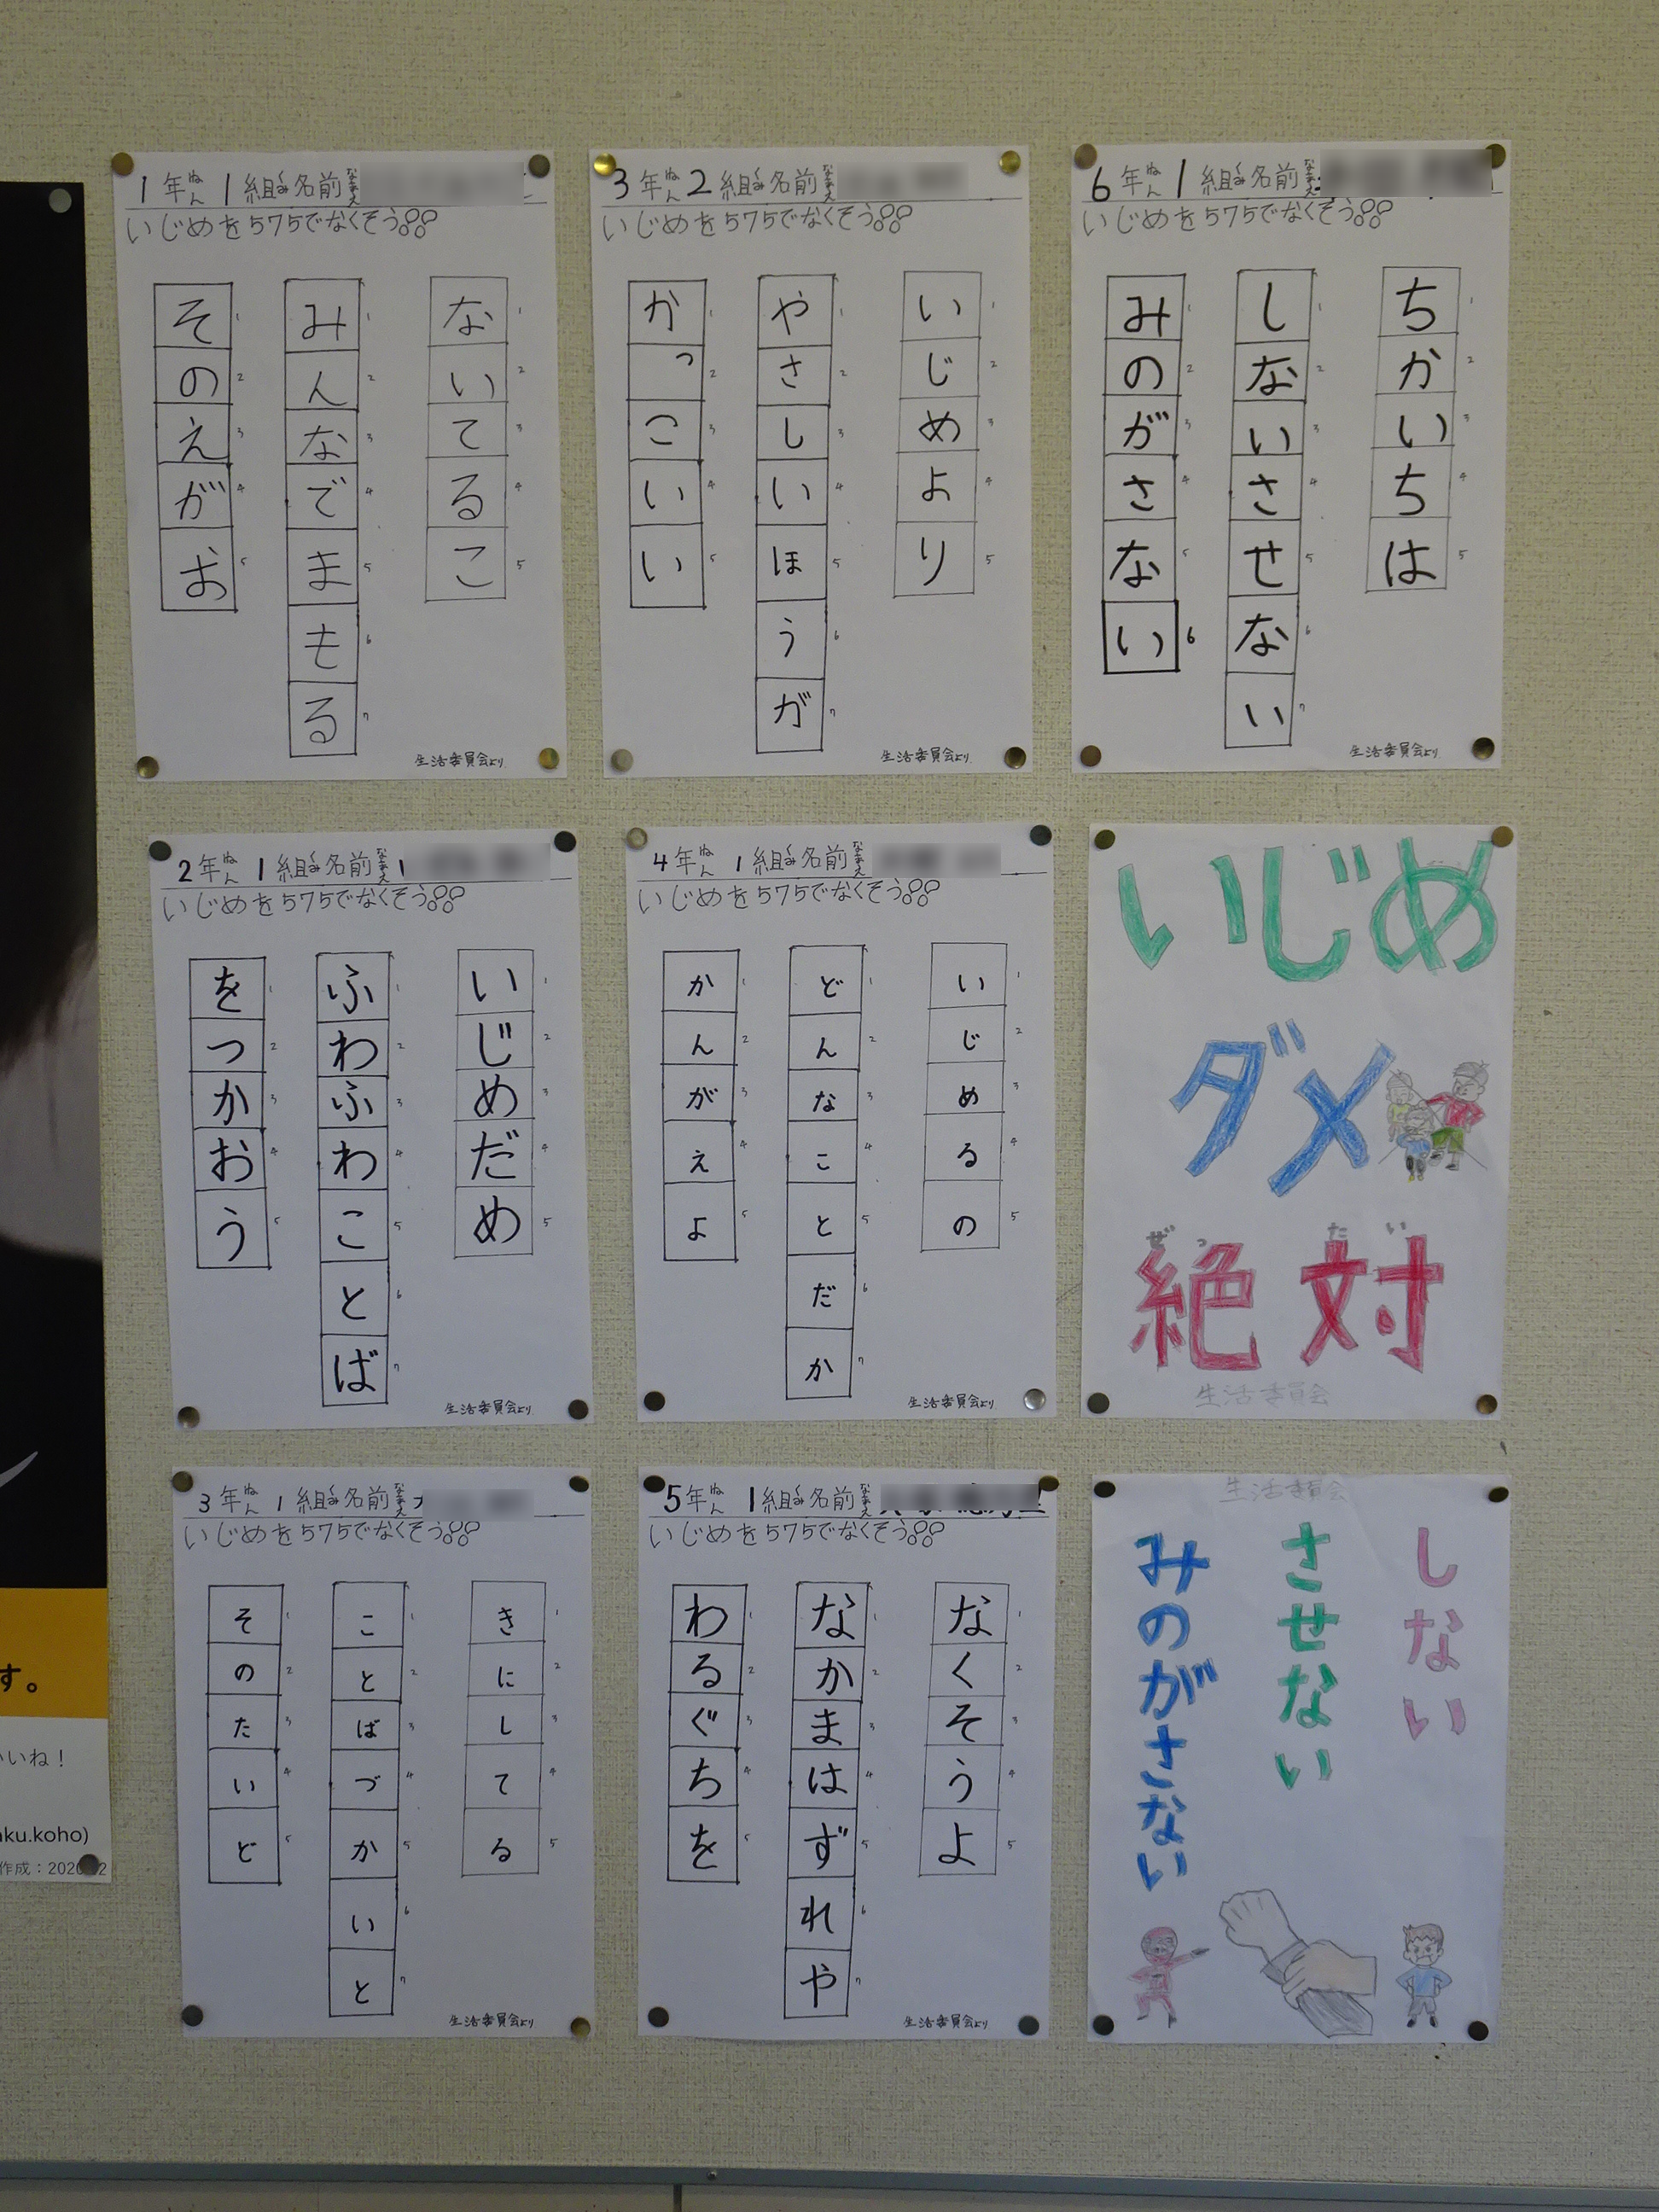 1年 1組 名前
ねん くみ なまえ
いじめを575でなくそう!!
ないてるこ
みんなでまもる
そのえがお
生活委員会より
3年 2組 名前
ねん くみ なまえ
いじめを575でなくそう!!
いじめより
やさしいほうが
かっこいい
生活委員会より
6年 1組 名前
ねん くみ なまえ
いじめを575でなくそう!!
ちかいちは
しないさせない
みのがさない
生活委員会より
2年 1組 名前
ねん くみ なまえ
いじめを575でなくそう!!
いじめだめ
ふわふわことば
をつかおう
生活委員会より
4年 1組 名前
ねん くみ なまえ
いじめを575でなくそう!!
いじめるの
どんなことだか
かんがえよ
生活委員会より
いじめ
ダメ
ぜったい
絶対
生活委員会
3年 1組 名前
ねん くみ なまえ
いじめを575でなくそう!!
きにしてる
ことばづかいと
そのたいど
生活委員会より
5年 1組 名前
ねん くみ なまえ
いじめを575でなくそう!!
なくそうよ
なかまはずれや
わるぐちを
生活委員会より
生活委員会
しない
させない
みのがさない
す。
いね！
ku.koho)
作成：202